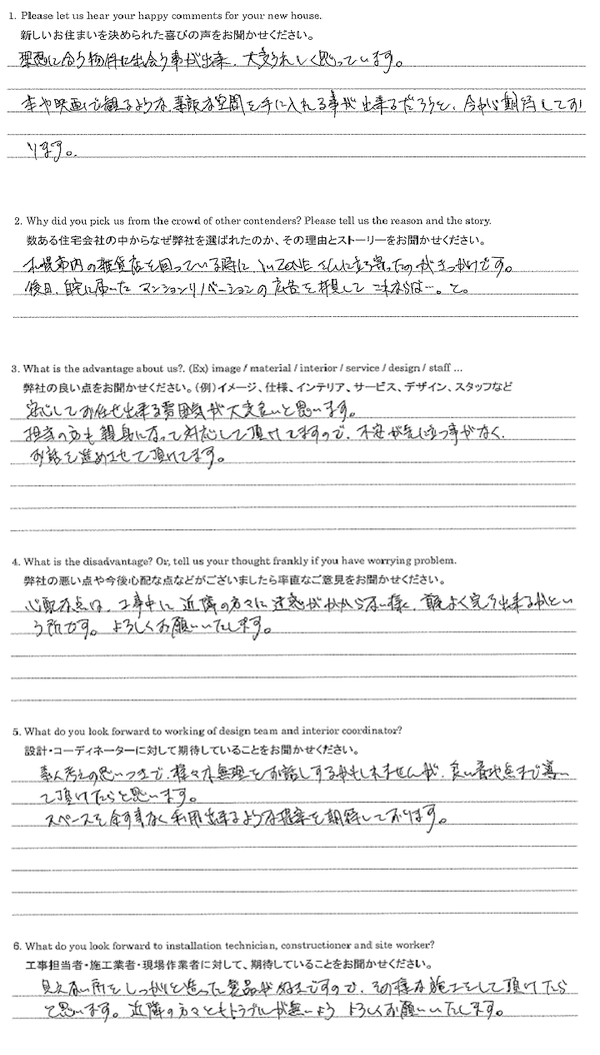 1. Please let us hear your happy comments for your new house.
新しいお住まいを決められた喜びの声をお聞かせください。
理想に合う物件に出会う事が出来、大変うれしく思っています。
本や映画で観るような素敵な空間を手に入れる事が出来るだろうと、今から期待してお
ります。
2. Why did you pick us from the crowd of other contenders? Please tell us the reason and the story.
数ある住宅会社の中からなぜ弊社を選ばれたのか、その理由とストーリーをお聞かせください。
札幌市内の雑貨店を回っている時に、inZONEさんに立ち寄ったのがきっかけです。
後日、自宅に届いたマンションリノベーションの広告を拝見してこれならば…。と。
3. What is the advantage about us?. (Ex) image / material / interior / service / design / staff ...
弊社の良い点をお聞かせください。（例）イメージ、仕様、インテリア、サービス、デザイン、スタッフなど
安心してお任せ出来る雰囲気が大変良いと思います。
担当の方も親身になって対応して頂けてますので、不安が先に立つ事がなく、
お話を進めさせて頂けてます。
4. What is the disadvantage? Or, tell us your thought frankly if you have worrying problem.
弊社の悪い点や今後心配な点などがございましたら率直なご意見をお聞かせください。
心配な点は、工事中に近隣の方々に迷惑がかからない様に、首尾よく完了出来るかとい
う所です。よろしくお願いいたします。
5. What do you look forward to working of design team and interior coordinator?
設計・コーディネーターに対して期待していることをお聞かせください。
素人考えの思いつきで、様々な無理をお話しするかもしれませんが、良い着地点まで導い
て頂けたらと思います。
スペースを余す事なく利用出来るような提案を期待しております。
6. What do you look forward to installation technician, constructioner and site worker?
工事担当者・施工業者・現場作業者に対して、期待していることをお聞かせください。
見えない所をしっかりと造った製品が好きですので、その様な施工をして頂けたら
と思います。近隣の方々ともトラブルが無いようよろしくお願いいたします。